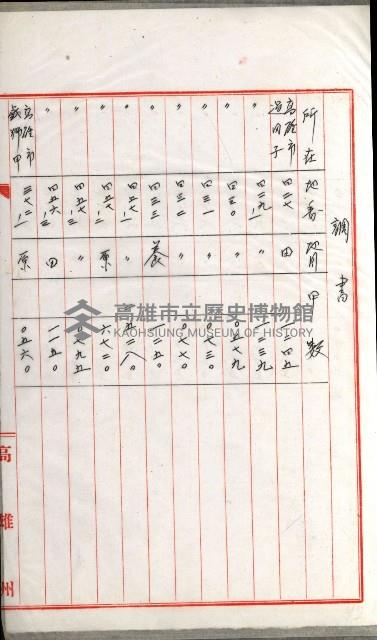 調書
所在 地番 地目 甲數
高雄市過田子 四二七 田 二三四五
〃 四二九ノ一 〃 一二三九
〃 四三〇 〃 〇五七九
〃 四三一 〃 〇七三〇
〃 四三二 〃 〇七七〇
〃 四三三 養 一二五〇
〃 四五七ノ一 〃 五二八〇
〃 四五七ノ二 原 六七二〇
〃 四五七ノ三 〃 〇七九五
〃 四五六ノ三 田 一一五〇
高雄市戲獅甲 三七二ノ一 原 〇五六〇
高雄州
高雄市立歷史博物館
KAOHSIUNG MUSEUM OF HISTORY